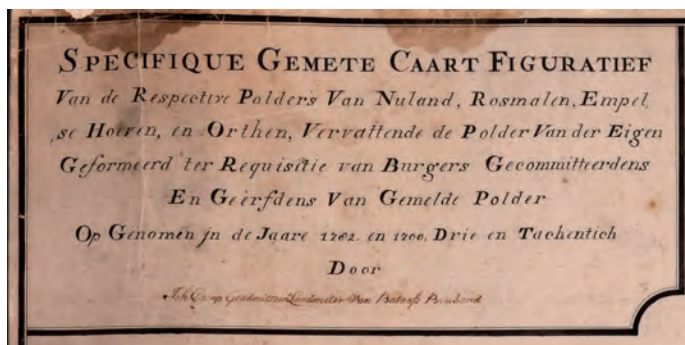 SPECIFIQUE GEMETE CAART FIGURATIEF
Van de Respective Polders Van Nuland, Rosmalen, Empel,
se Hoeven, en Orthen, Vervattende de Polder Van der Eigen
Geformeerd ter Requisitie van Burgers Gecommitteerdens
En Geërfdens Van Gemelde Polder
Op Genomen jn de Jaare 1782. en 1700. Drie en Tachentich
Door
Joh Camp Geadmitteert Landmeter Van Bataafs Braband